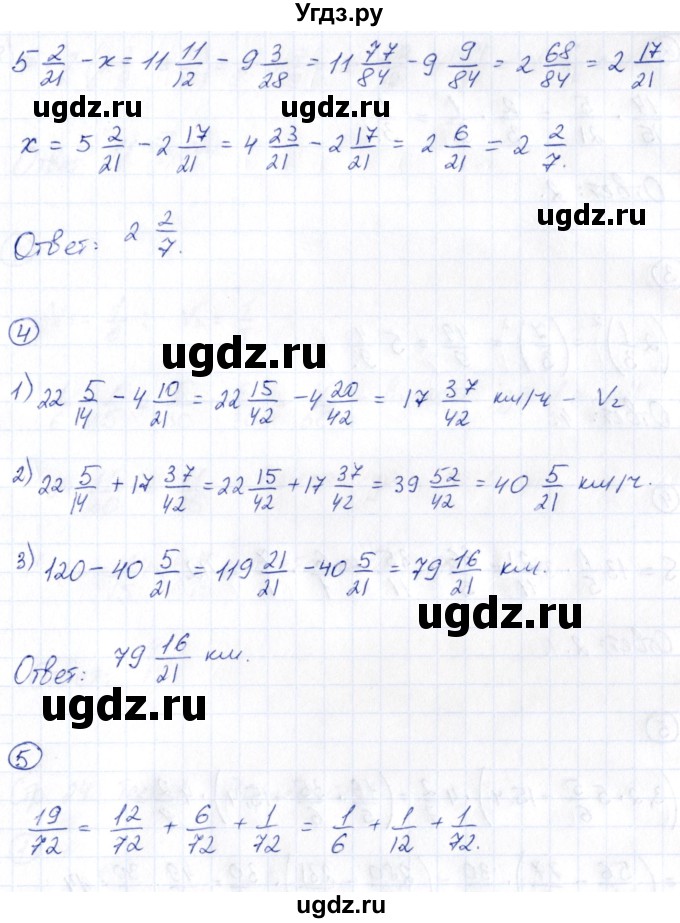 Угдз.ру
5 2/21 - x = 11 11/12 - 9 3/28 = 11 77/84 - 9 9/84 = 2 68/84 = 2 17/21
ugdz.ru ugdz.ru
x = 5 2/21 - 2 17/21 = 4 23/21 - 2 17/21 = 2 6/21 = 2 2/7.
ugdz.ru
Ответ: 2 2/7.
4
ugdz.ru
1) 22 5/14 - 4 10/21 = 22 15/42 - 4 20/42 = 17 37/42 км/ч - V2
2) 22 5/14 + 17 37/42 = 22 15/42 + 17 37/42 = 39 52/42 = 40 5/21 км/ч.
3) 120 - 40 5/21 = 119 21/21 - 40 5/21 = 79 16/21 км.
ugdz.ru
Ответ: 79 16/21 км.
ugdz.ru
5
19/72 = 12/72 + 6/72 + 1/72 = 1/6 + 1/12 + 1/72.
ugdz.ru ugdz.ru